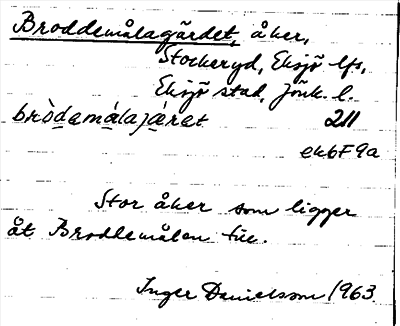 Broddemålagärdet, åker,
Stockeryd, Eksjö lfs,
Eksjö stad, Jönk. l.
bròdamálajǽrat 211
ek6F9a
Stor åker som ligger
åt Broddemålen till.
Inger Danielsson 1963